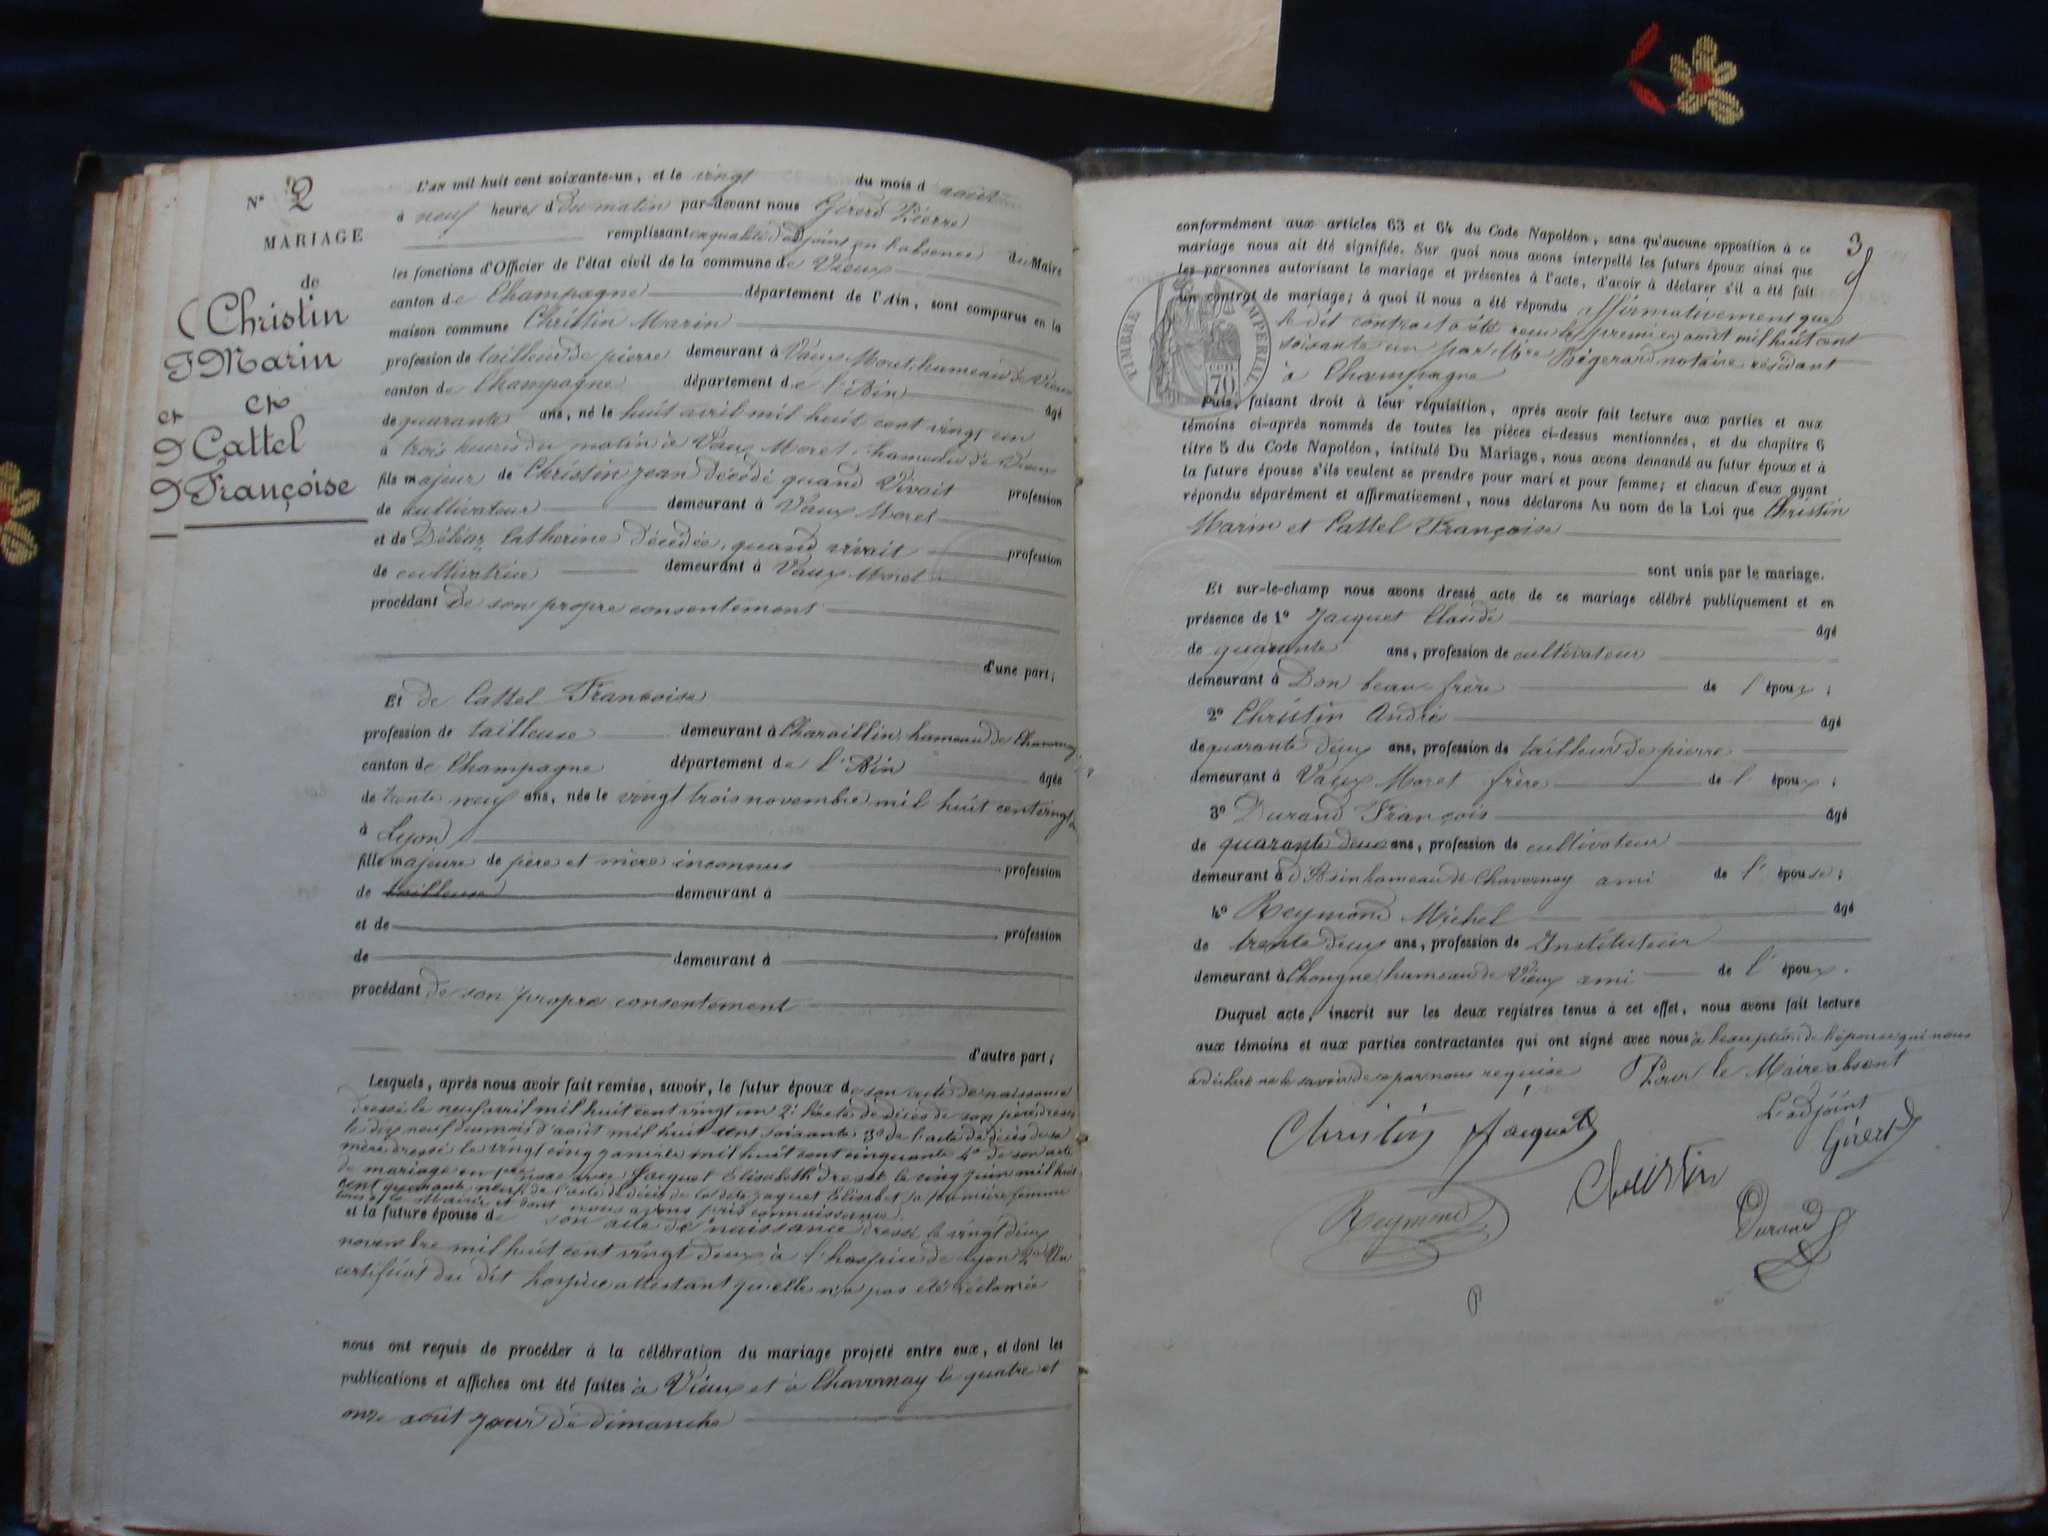 N° 2
MARIAGE
de
Christin
Marin
et
et
Cattel
Françoise
L'an mil huit cent soixante-un, et le vingt du mois d août
à neuf heures d du matin par-devant nous Girerd Pierre
remplissant en qualité d'adjoint en l'absence du Maire
les fonctions d'Officier de l'état civil de la commune de Vieux
canton de Champagne département de l'Ain, sont comparus en la
maison commune Christin Marin
profession de tailleur de pierre demeurant à Vaux Moret, hameau de Vieux
canton de Champagne département de l'Ain âgé
de quarante ans, né le huit avril mil huit cent vingt un
à trois heures du matin à Vaux Moret, hameau de Vieux
fils majeur de Christin Jean décédé quand vivait profession
de cultivateur demeurant à Vaux Moret
et de Catherine décédée, quand vivait profession
de cultivatrice demeurant à Vaux Moret
procédant de son propre consentement
d'une part;
Et de Cattel Françoise
profession de tailleuse demeurant à Charaillin, hameau de Chavornay
canton de Champagne département de l'Ain âgée
de trente neuf ans, née le vingt trois novembre mil huit cent vingt
à Lyon
fille majeure de père et mère inconnus profession
de tailleuse demeurant à
et de profession
de demeurant à
procédant de son propre consentement
d'autre part;
Lesquels, après nous avoir fait remise, savoir, le futur époux de son acte de naissance
dressé le neuf avril mil huit cent vingt un 2° l'acte de décès de son père, dressé
le dix neuf du mois d'août mil huit cent soixante 3° de l'acte de décès de sa
mère dressé le vingt cinq janvier mil huit cent cinquante 4° de son acte
de mariage en avec Jacquet Elisabeth dressé le cinq juin mil huit
cent quarante neuf, de l'acte de décès de la dite Jaquet Elisabet, sa première femme
la Mairie et dont nous avons pris connaissance.
et la future épouse de son acte de naissance dressé le vingt deux
novembre mil huit cent vingt deux à l'hospice de Lyon 2° Un
certificat du dit hospice attestant qu'elle n'a pas été réclamée
nous ont requis de procéder à la célébration du mariage projeté entre eux, et dont les
publications et affiches ont été faites à Vieux et à Chavornay le quatre et
onze août jour de dimanche
3
conformément aux articles 63 et 64 du Code Napoléon, sans qu'aucune opposition à ce
mariage nous ait été signifiée. Sur quoi nous avons interpellé les futurs époux ainsi que
les personnes autorisant le mariage et présentes à l'acte, d'avoir à déclarer s'il a été fait
un contrat de mariage; à quoi il nous a été répondu affirmativement que
le dit contrat a été reçu le premier août mil huit cent
soixante un par Mtre Bégerard notaire résidant
à Champagne
TIMBRE IMPERIAL
CEN. 70
Puis, faisant droit à leur réquisition, après avoir fait lecture aux parties et aux
témoins ci-après nommés de toutes les pièces ci-dessus mentionnées, et du chapitre 6
titre 5 du Code Napoléon, intitulé Du Mariage, nous avons demandé au futur époux et à
la future épouse s'ils veulent se prendre pour mari et pour femme; et chacun d'eux ayant
répondu séparément et affirmativement, nous déclarons Au nom de la Loi que Christin
Marin et Cattel Françoise
sont unis par le mariage.
Et sur-le-champ nous avons dressé acte de ce mariage célébré publiquement et en
présence de 1° Jacquet Claude âgé
de quarante ans, profession de cultivateur
demeurant à Don beau frère de l'époux;
2° Christin André âgé
de quarante deux ans, profession de tailleur de pierre
demeurant à Vaux Moret frère de l'époux;
3° Durand François âgé
de quarante deux ans, profession de cultivateur
demeurant à d'Asin hameau de Chavornay ami de l'épouse;
4° Reymond Michel âgé
de trente deux ans, profession de Instituteur
demeurant à Chongne, hameau de Vieux ami de l'époux.
Duquel acte, inscrit sur les deux registres tenus à cet effet, nous avons fait lecture
aux témoins et aux parties contractantes qui ont signé avec nous à l'exception de l'épouse qui nous
a déclaré ne le savoir de ce par nous requise Pour le Maire absent
L'adjoint
Christin Jacquet Girerd
Christin
Reymond Durand